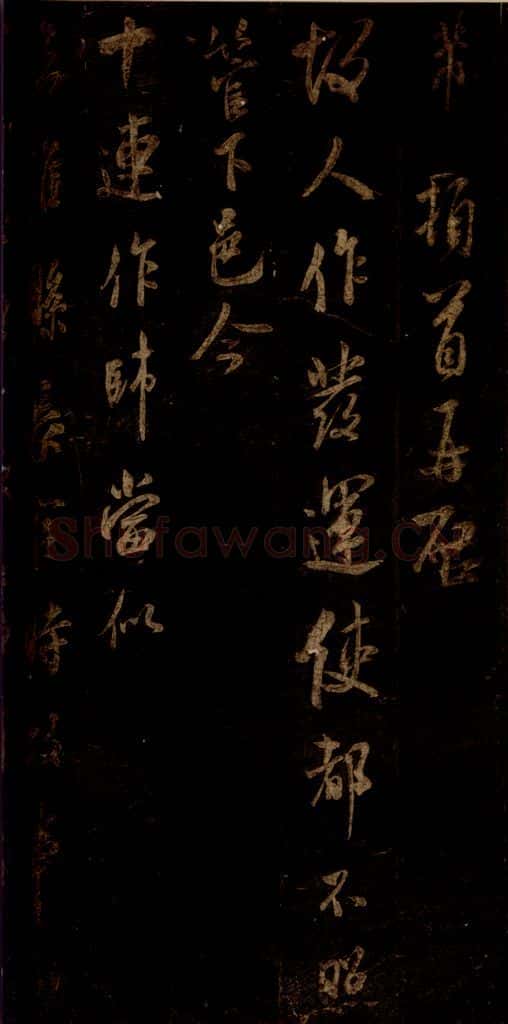 芾頓首再啓
故人作發運使都不照
管下邑今
十連作帥當似
時
Shufawang.CN